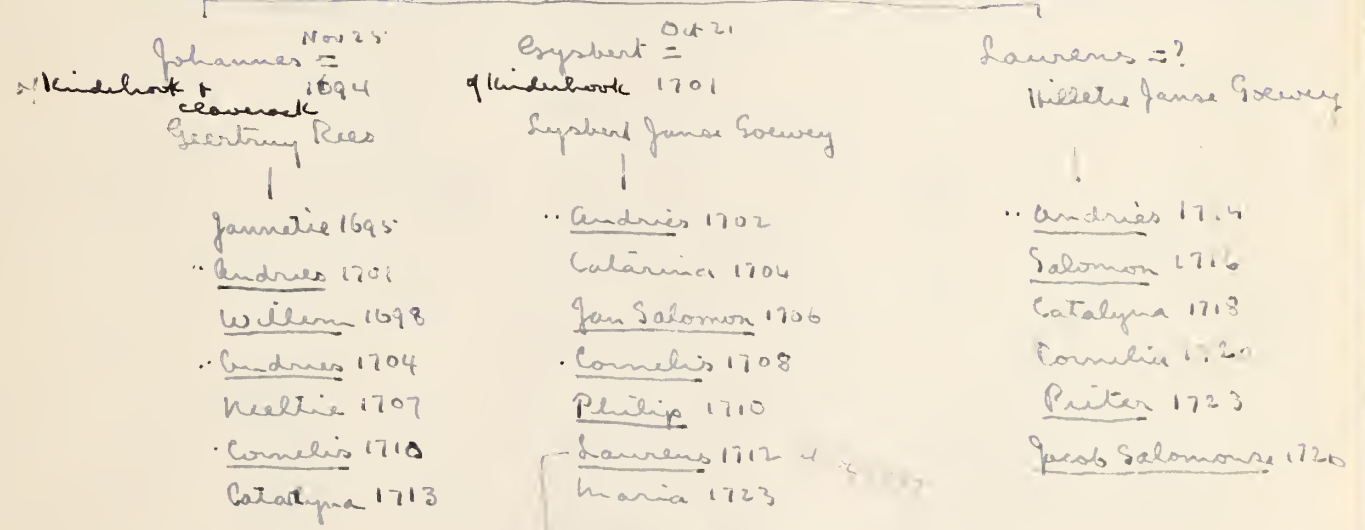 Nov 25
Johannes =
of Kinderhook + 1694
Claverack
Geertruy Rees
Jannetie 1695
.. Andries 1701
Willem 1698
.. Andries 1704
Neeltie 1707
. Cornelis 1710
Catalyna 1713
Oct 21
Gysbert =
of Kinderhook 1701
Lysbert Janse Goewey
.. Andries 1702
Catarina 1704
Jan Salomon 1706
. Cornelis 1708
Philip 1710
Laurens 1712
Maria 1723
Laurens = ?
Hilletie Janse Goewey
.. Andries
Salomon 1716
Catalyna 1718
Cornelia 1720
Pieter 1723
Jacob Salomonse